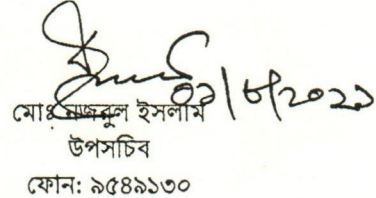 ০১/৮/২০২১
মোঃ নজরুল ইসলাম
উপসচিব
ফোন: ৯৫৪৯১৩০